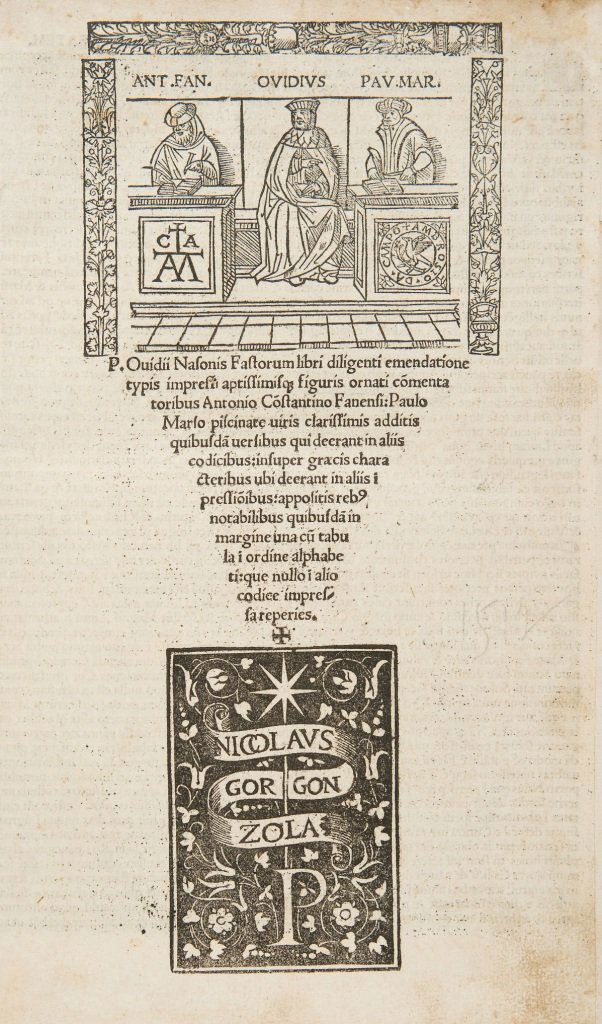 ANT.FAN. OVIDIVS PAV.MAR.
C A
AM
DA CAMPO AMOROSO
P. Ouidii Nasonis Fastorum libri diligenti emendatione
typis impressi aptissimisq; figuris ornati cōmenta
toribus Antonio Cōstantino Fanensi: Paulo
Marso piscinate uiris clarissimis additis
quibusdā uersibus qui deerant in aliis
codicibus: insuper græcis chara
cteribus ubi deerant in aliis ī
pressiōibus: appositis rebꝰ
notabilibus quibusdā in
margine una cū tabu
la ī ordine alphabe
ti: que nullo ī alio
codice impres-
sa reperies.
NICOLAVS
GOR GON
ZOLA
P